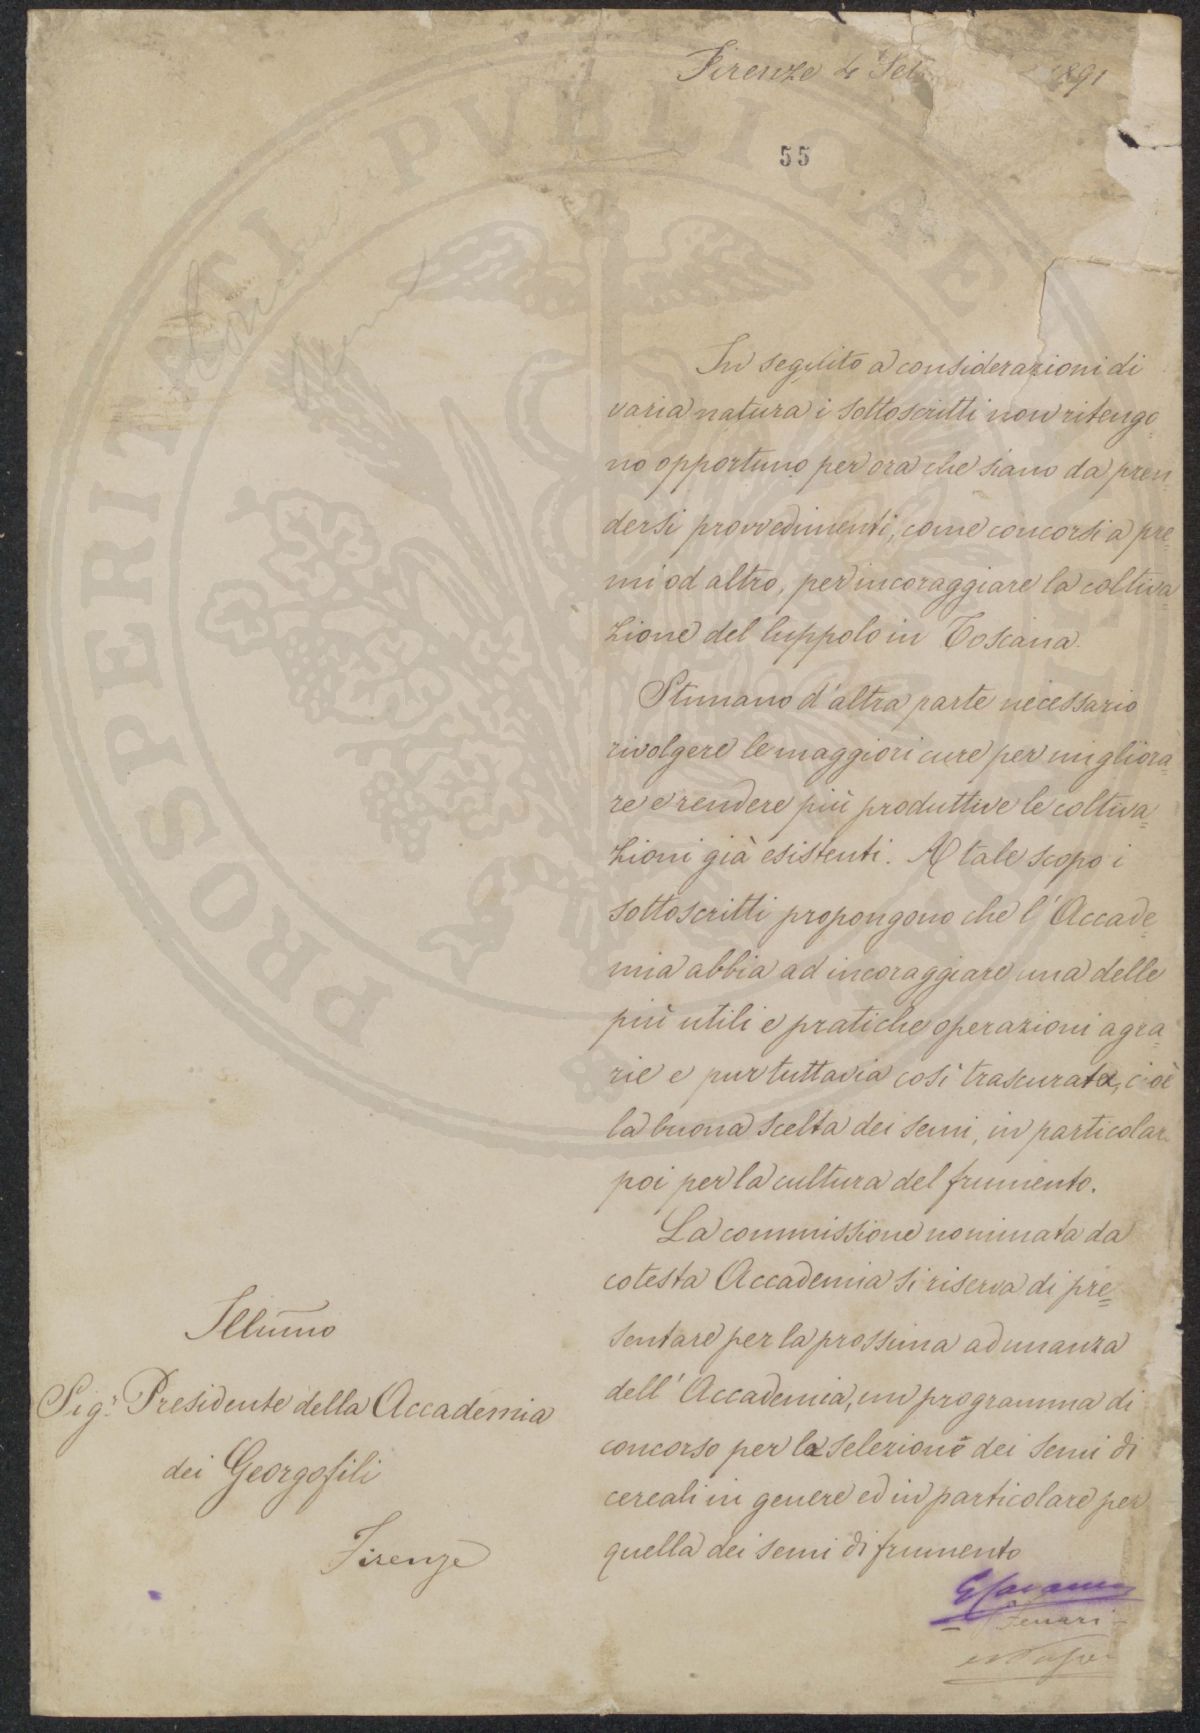 Firenze 4 Set 1891
55
In seguito a considerazioni di
varia natura i sottoscritti non ritengo-
no opportuno per ora che siano da pren-
dersi provvedimenti, come concorsi a pre-
mi od altro, per incoraggiare la coltiva-
zione del luppolo in Toscana.
Stimano d'altra parte necessario
rivolgere le maggiori cure per migliora-
re e rendere più produttive le coltiva-
zioni già esistenti. A tale scopo i
sottoscritti propongono che l'Accade-
mia abbia ad incoraggiare una delle
più utili e pratiche operazioni agra-
rie e pur tuttavia così trascurata, cioè
la buona scelta dei semi, in particolar
poi per la cultura del frumento.
La commissione nominata da
cotesta Accademia si riserva di pre=
sentare per la prossima adunanza
dell'Accademia, un programma di
concorso per la selezione dei semi di
cereali in genere ed in particolare per
quella dei semi di frumento
Illmo
Sigr. Presidente della Accademia
dei Georgofili
Firenze
PROSPERITATI PVBLICAE